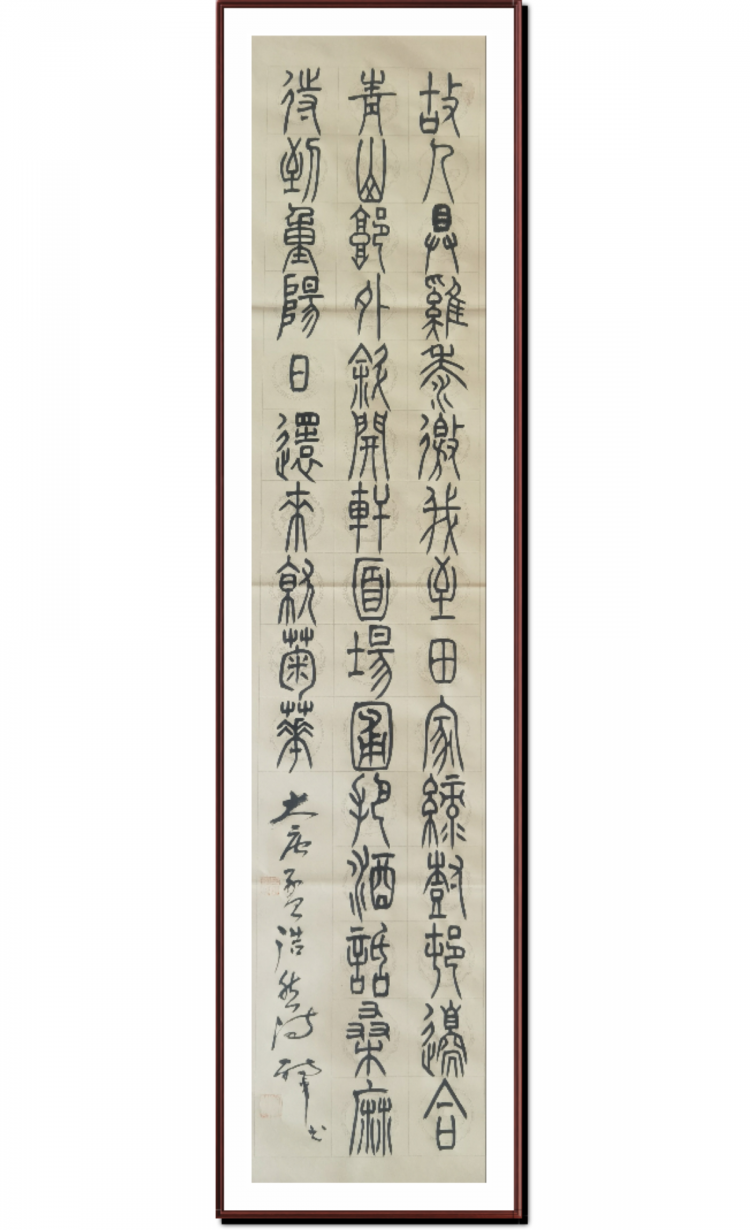 故人具雞黍徼我至田家綠樹邨邊合
青山郭外斜開軒面場圃把酒話桑麻
待到重陽日還來就菊華 大唐孟浩然诗 书